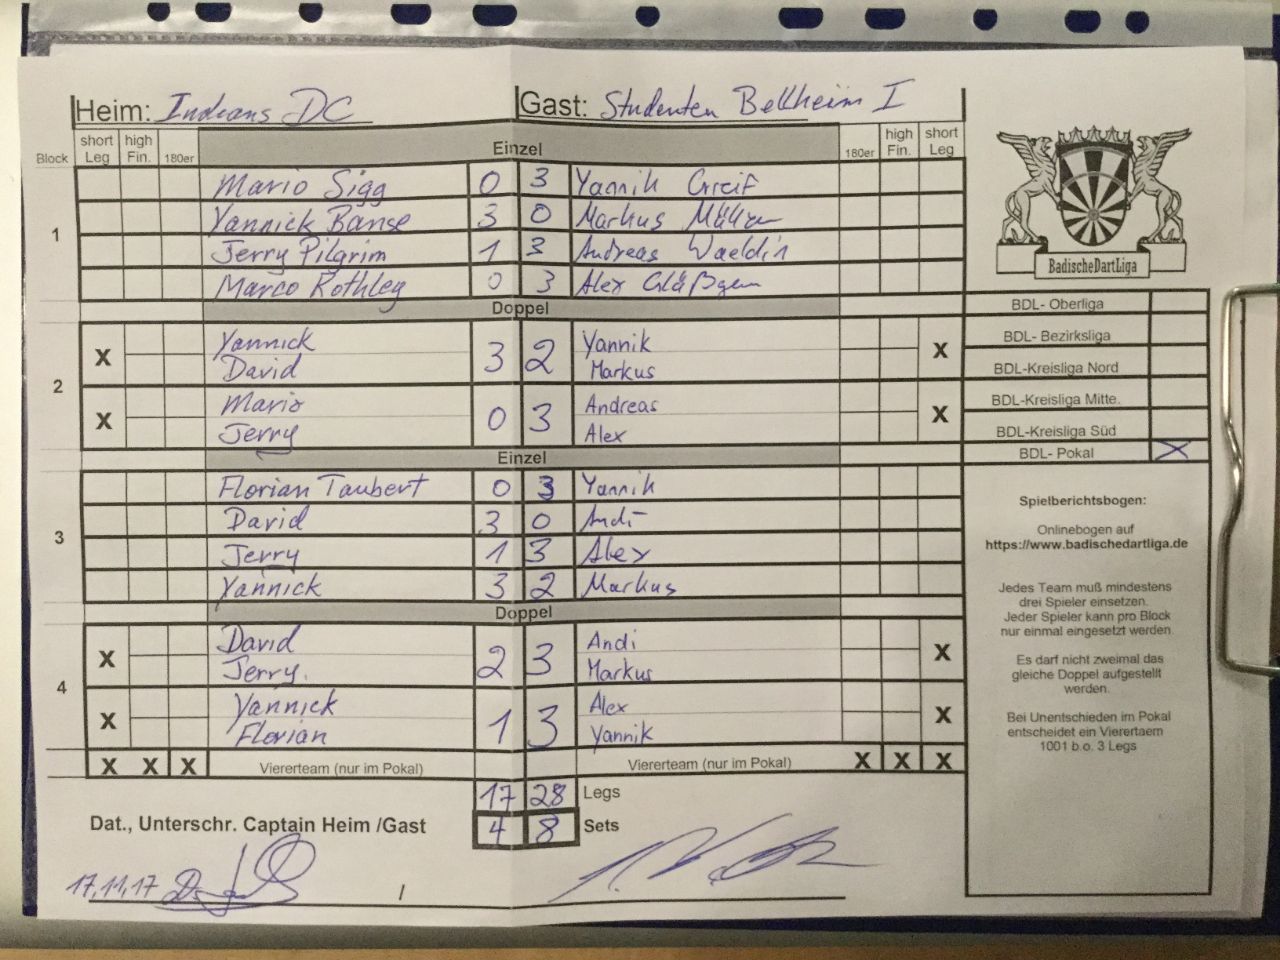 Heim: Indeans DC Gast: Studenten Bellheim I
Block short Leg high Fin. 180er Einzel 180er high Fin. short Leg
1
Mario Sigg 0 3 Yannik Greif
Yannick Banse 3 0 Markus Müller
Jerry Pilgrim 1 3 Andreas Waeldin
Marco Rothley 0 3 Alex Gläßgen
BadischeDartLiga
Doppel
2
X Yannick David 3 2 Yannik Markus X
X Mario Jerry 0 3 Andreas Alex X
Einzel
3
Florian Taubert 0 3 Yannik
David 3 0 Andi
Jerry 1 3 Alex
Yannick 3 2 Markus
Doppel
4
X David Jerry 2 3 Andi Markus X
X Yannick Florian 1 3 Alex Yannik X
X X X Viererteam (nur im Pokal) Viererteam (nur im Pokal) X X X
17 28 Legs
Dat., Unterschr. Captain Heim /Gast 4 8 Sets
17.11.17 /
BDL- Oberliga
BDL- Bezirksliga
BDL-Kreisliga Nord
BDL-Kreisliga Mitte.
BDL-Kreisliga Süd
BDL- Pokal X
Spielberichtsbogen:
Onlinebogen auf
https://www.badischedartliga.de
Jedes Team muß mindestens
drei Spieler einsetzen.
Jeder Spieler kann pro Block
nur einmal eingesetzt werden.
Es darf nicht zweimal das
gleiche Doppel aufgestellt
werden.
Bei Unentschieden im Pokal
entscheidet ein Vierertaem
1001 b.o. 3 Legs